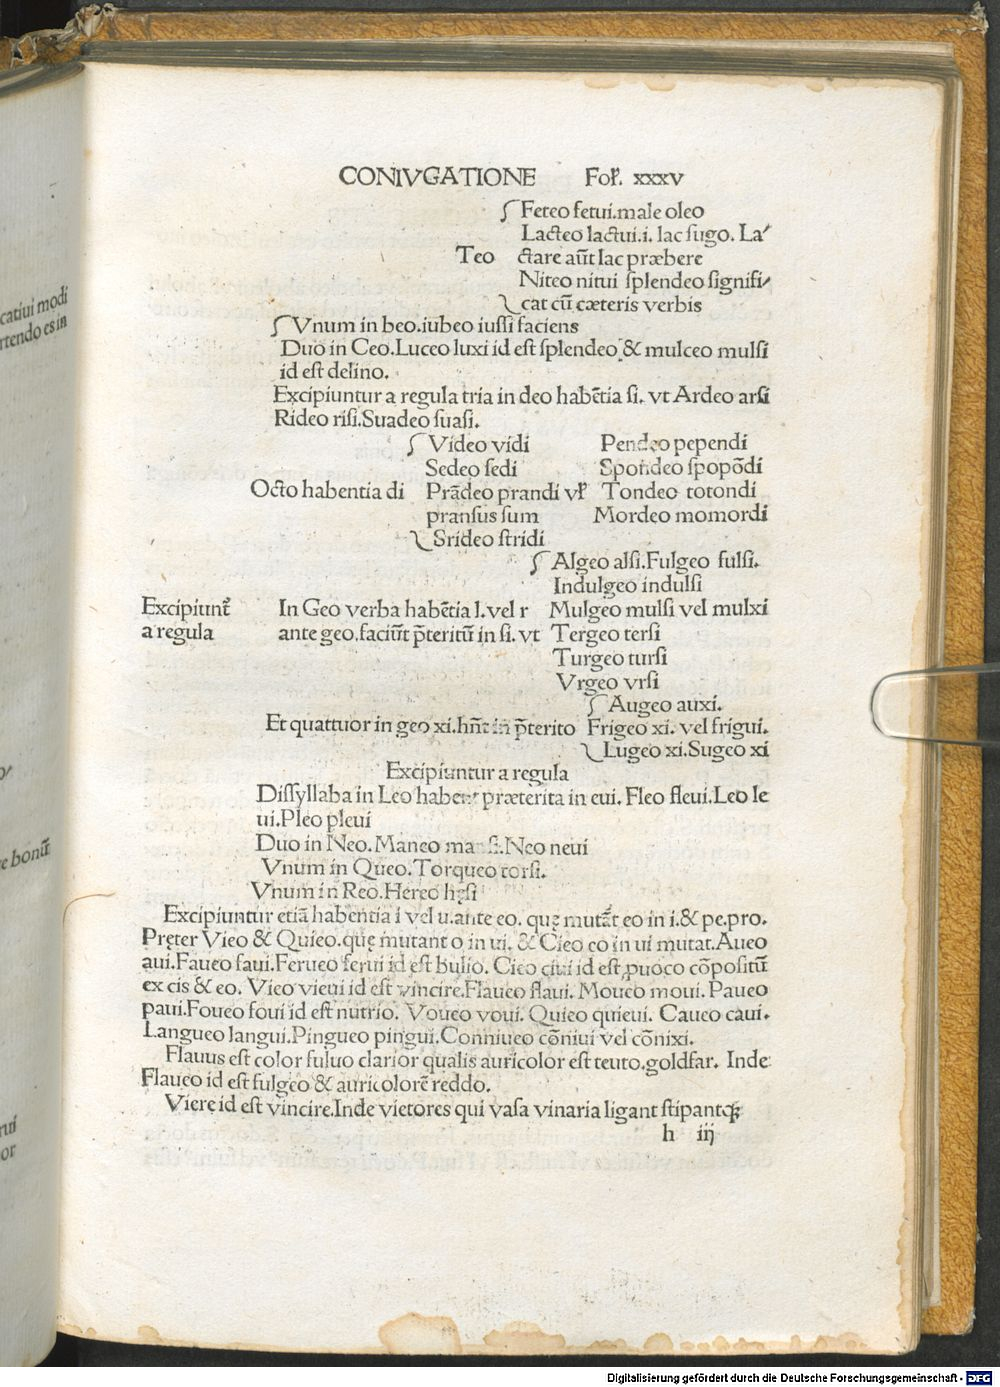 CONIVGATIONE Fol. xxxv
Feteo fetui.male oleo
Lacteo lactui.i. lac sugo. La
Teo ctare aūt lac præbere
Niteo nitui splendeo signifi
cat cū cæteris verbis
Vnum in beo.iubeo iussi faciens
Duo in Ceo.Luceo luxi id est splendeo & mulceo mulsi
id est delino.
Excipiuntur a regula tria in deo habētia si. vt Ardeo arsi
Rideo risi.Suadeo suasi.
Video vidi Pendeo pependi
Sedeo sedi Spondeo spopōdi
Octo habentia di Prādeo prandi vl Tondeo totondi
pransus sum Mordeo momordi
Srideo stridi
Algeo alsi.Fulgeo fulsi.
Indulgeo indulsi
Excipiunt In Geo verba habētia l. vel r Mulgeo mulsi vel mulxi
a regula ante geo.faciūt p̄teritū in si. vt Tergeo tersi
Turgeo tursi
Vrgeo vrsi
Augeo auxi.
Et quattuor in geo xi.hn̄t in p̄terito Frigeo xi. vel frigui.
Lugeo xi.Sugeo xi
Excipiuntur a regula
Dissyllaba in Leo habent præterita in eui. Fleo fleui.Leo le
ui.Pleo pleui
Duo in Neo. Maneo mansi.Neo neui
Vnum in Queo.Torqueo torsi.
Vnum in Reo.Hereo hęsi
Excipiuntur etiā habentia i vel u.ante eo. quę mutāt eo in i.& pe.pro.
Pręter Vieo & Quieo.quę mutant o in ui. & Cieo eo in ui mutat.Aueo
aui.Faueo faui.Ferueo ferui id est bulio. Cieo ciui id est puoco cōpositū
ex cis & eo. Vieo vieui id est vincire.Flaueo flaui. Moueo moui. Paueo
paui.Foueo foui id est nutrio. Voueo voui. Quieo quieui. Caueo caui.
Langueo langui.Pingueo pingui.Conniueo cōniui vel cōnixi.
Flauus est color fuluo clarior qualis auricolor est teuto.goldfar. Inde
Flaueo id est fulgeo & auricolorē reddo.
Viere id est vincire.Inde vietores qui vasa vinaria ligant stipantq;
h iij
catiui modi
rtendo es in
e bonū
rui
or
Digitalisierung gefördert durch die Deutsche Forschungsgemeinschaft - DFG